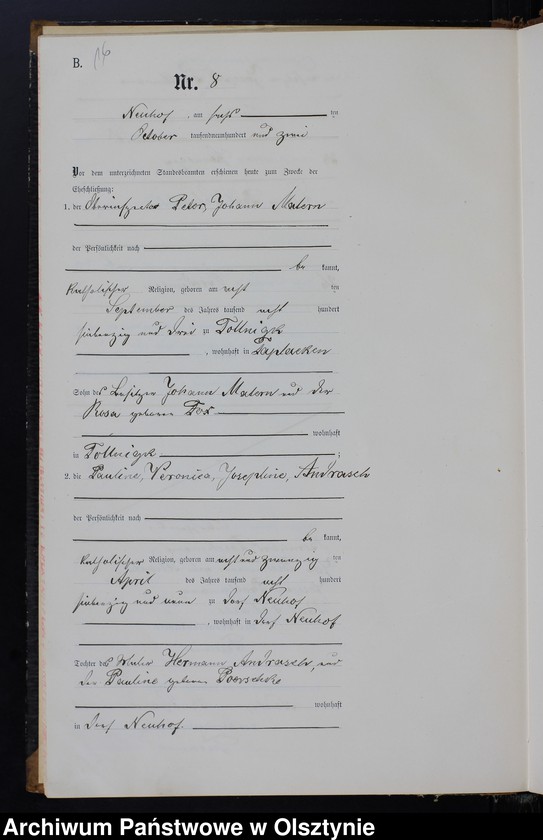 B. 16
Nr. 8
Neuhof, am sechs ten
October tausendneunhundert und zwei
Vor dem unterzeichneten Standesbeamten erschienen heute zum Zwecke der
Eheschließung:
1. der Oberinspector Peter, Johann Matern
der Persönlichkeit nach
be kannt,
katholischer Religion, geboren am acht ten
September des Jahres tausend acht hundert
siebenzig und drei zu Tollnigk
, wohnhaft in Taplacken
Sohn des Besitzer Johann Matern und der
Rosa geborene Fox
wohnhaft
in Tollnigk ;
2. die Pauline, Veronica, Josephine, Andrasch
der Persönlichkeit nach
be kannt,
katholischer Religion, geboren am acht und zwanzig ten
April des Jahres tausend acht hundert
siebenzig und neun zu Dorf Neuhof
, wohnhaft in Dorf Neuhof
Tochter des Hermann Andrasch, und
der Pauline geborene Poerschke
wohnhaft
in Dorf Neuhof.
Archiwum Państwowe w Olsztynie